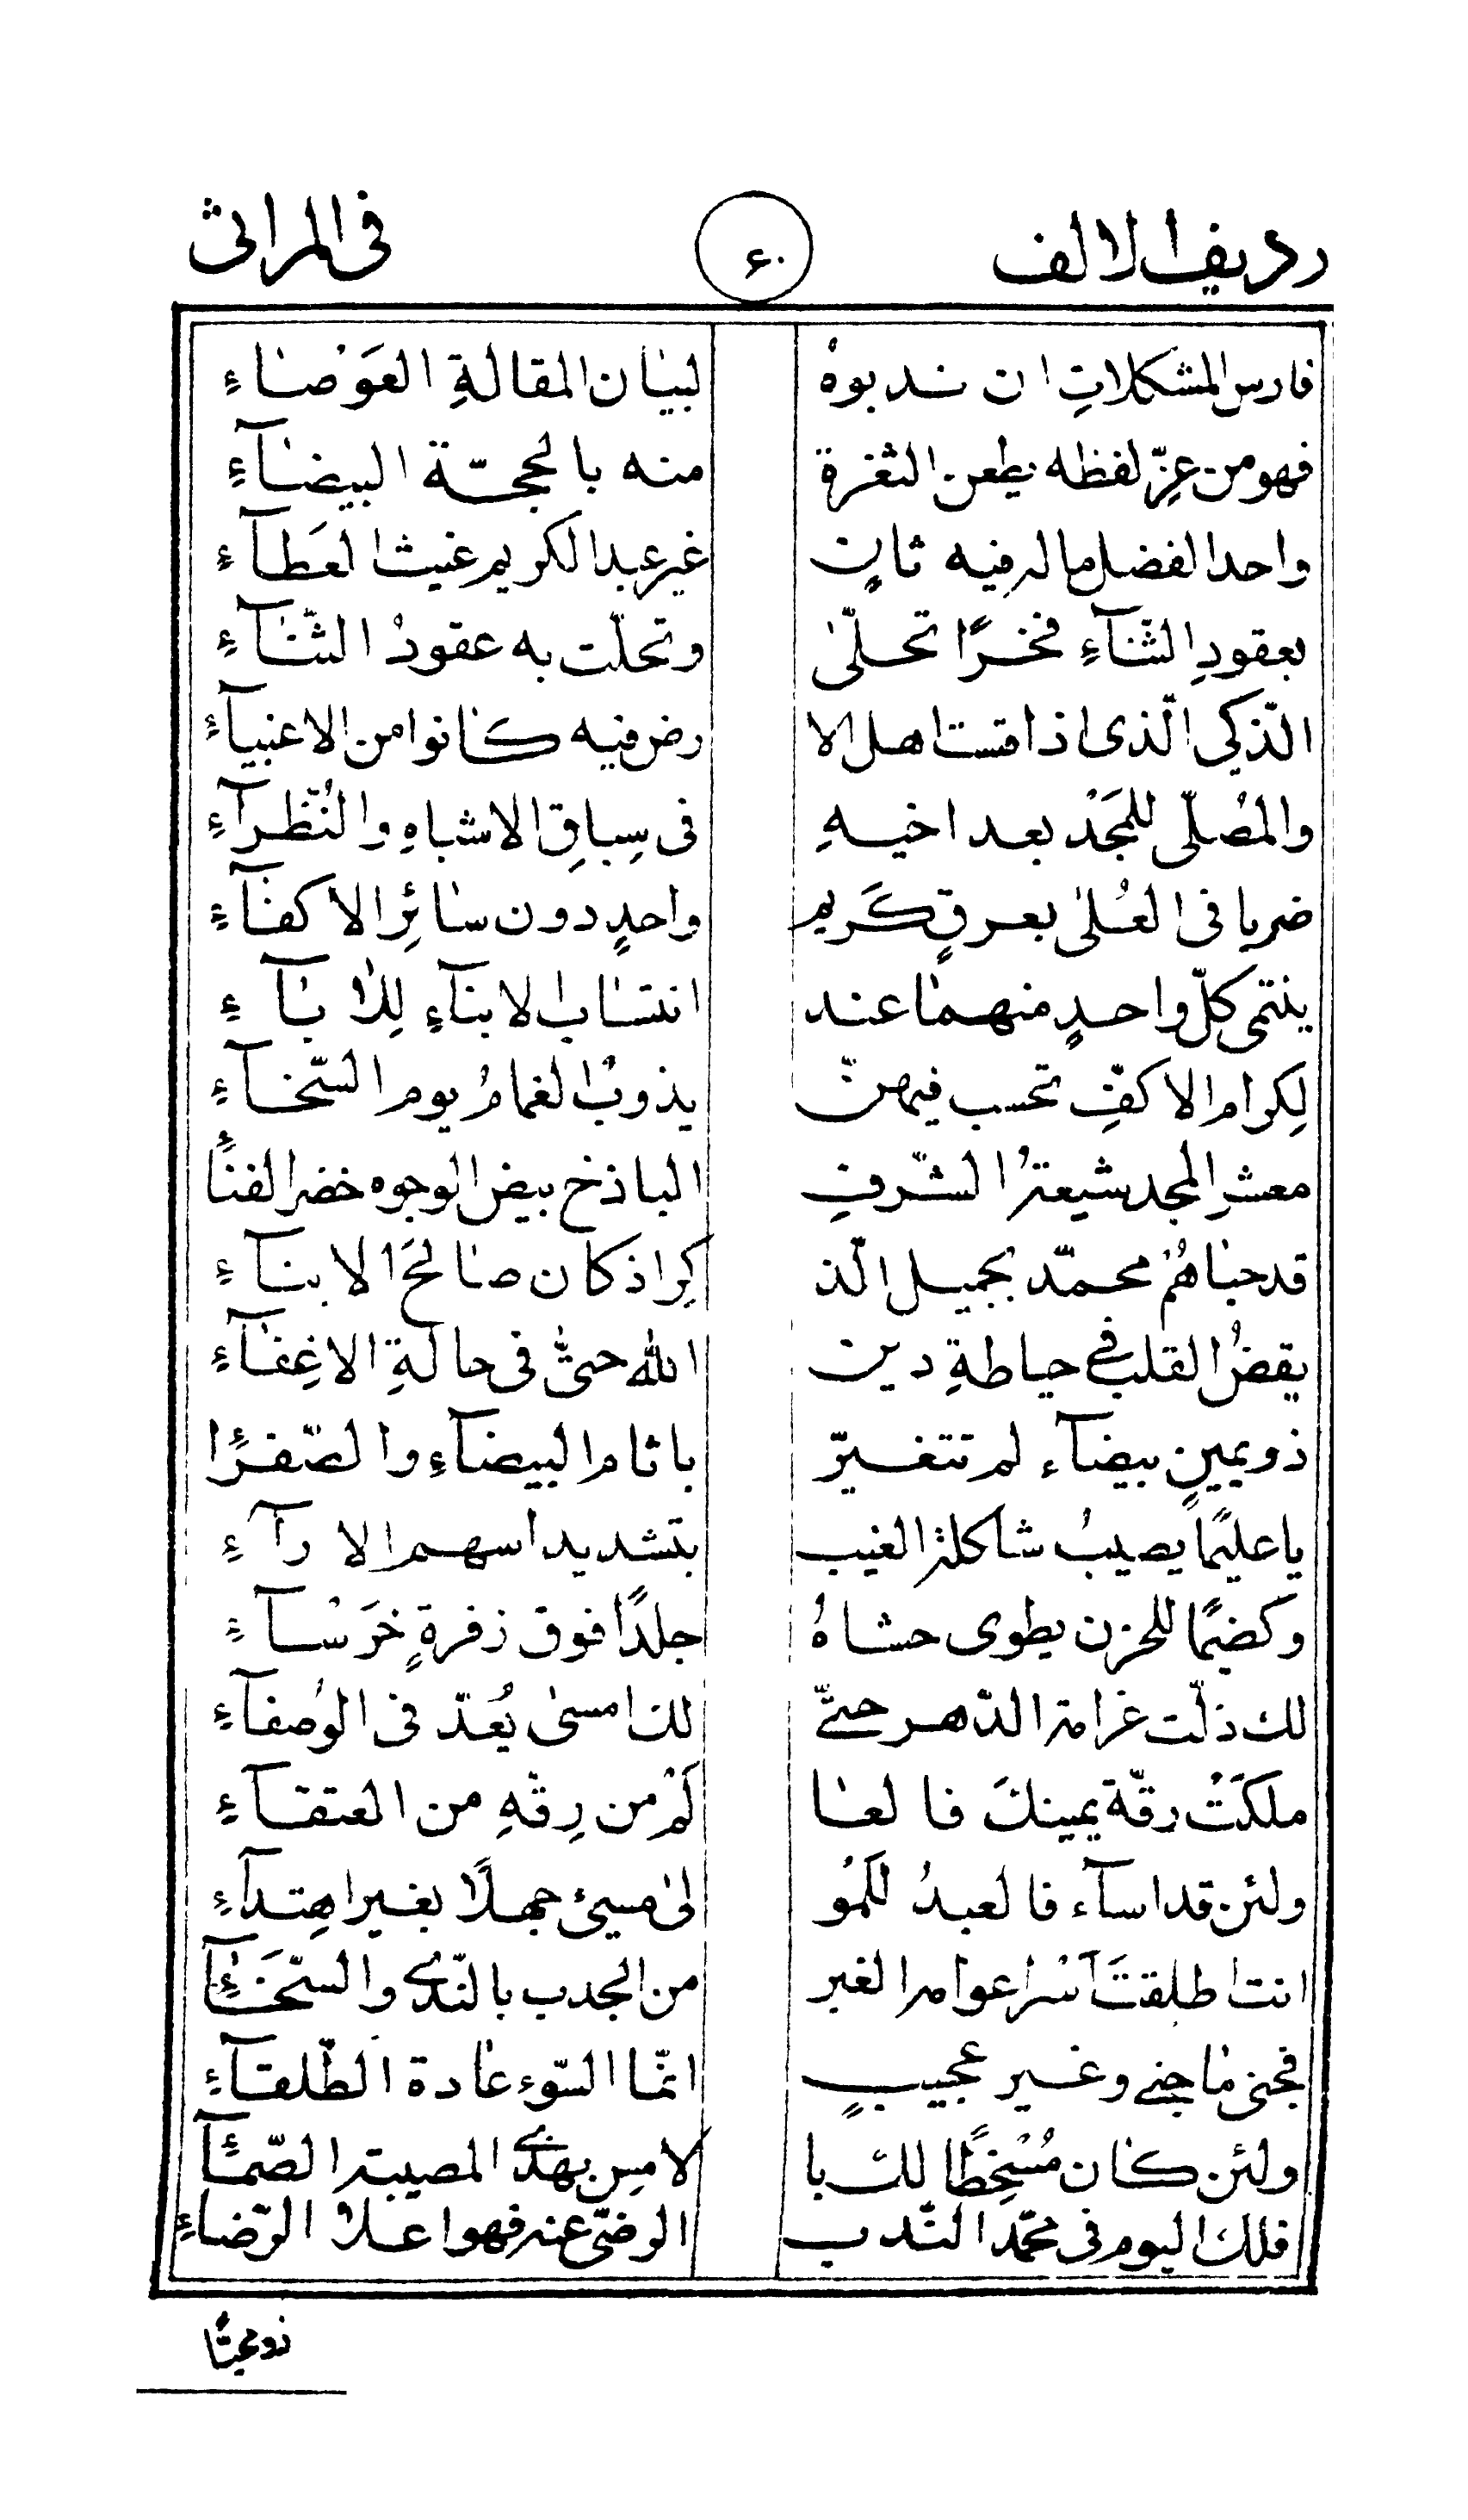 ردیف الالف ٤٠ فی المراثی
فارس المشکلاتِ ان ندبوهُ لبیان المقالةِ العَوْصاءِ
فهو من عزِّ لفظه یطعن الثغرة منه بالحجّة البیضآءِ
واحد الفضل ماله فیه ثانٍ غیر عبد الکریم غیث العَطآءِ
بعقودِ الثّنآءِ فخرًا تحلّیٰ وتحلّت به عقودُ الثّنآءِ
الذّکی الّذی اذا قست اهل الا رض فیه کانوا من الاغبیآءِ
والمُصلّی للمَجْد بعد اخیهِ فی سِباقِ الاشباهِ والنُّظرآءِ
ضربا فی العُلیٰ بعرقٍ کَریم واحدٍ دون سائِرِ الاکفآءِ
ینتمی کلّ واحدٍ منهما عند انتساب الابنآءِ لِلاٰبآءِ
لِکرام الاکفِّ تحسب فیهنّ یذوبُ الغمامُ یوم السّخآءِ
معشر المجد شیعتهُ الشّرفِ الباذخ بیض الوجوه خضر الفنآءِ
قد حباهُمْ محمّد بجمیل الّذ کرِ اذ کان صالحَ الابنآءِ
یقضُ القلب فی حیاطةِ دین الله حتّیٰ فی حالةِ الاغِفآءِ
ذو یمینٍ بیضآء لم تتغیّر باثام البیضآءِ والصّفرآءِ
یا علیمًا یصیبُ شاکلة الغیب بتشدید اسهم الارآءِ
وکضیمًا للحزن یطوی حشاهُ جلدًا فوق زفرةٍ خرَسْآءِ
لک ذلّت غرامة الدّهر حتّی لک امسیٰ یُعدّ فی الوُصفآءِ
ملکَتْ رقّة یمینکَ فالعا لَمُ من رِقّهِ من العتقآءِ
ولئن قد اسآء فالعبدُ للمَوْ لیٰ مسیئ جهلًا بغیر اهِتدآءِ
انت اطلقتَ آسْر اعوامه الغبر من الجدب بالنّدیٰ والسّخَآءِ
فجنی ما جنی وغیر عجیبٍ انّما السّوء عادة الطّلقآءِ
ولئن کان مُسْخِطًا لک با لامسِ بهذی المصیبة الصّمّآءِ
فلک الیوم فی محمّد النّدب الرضیّ عنه فهو اعلا الرّضاءِ